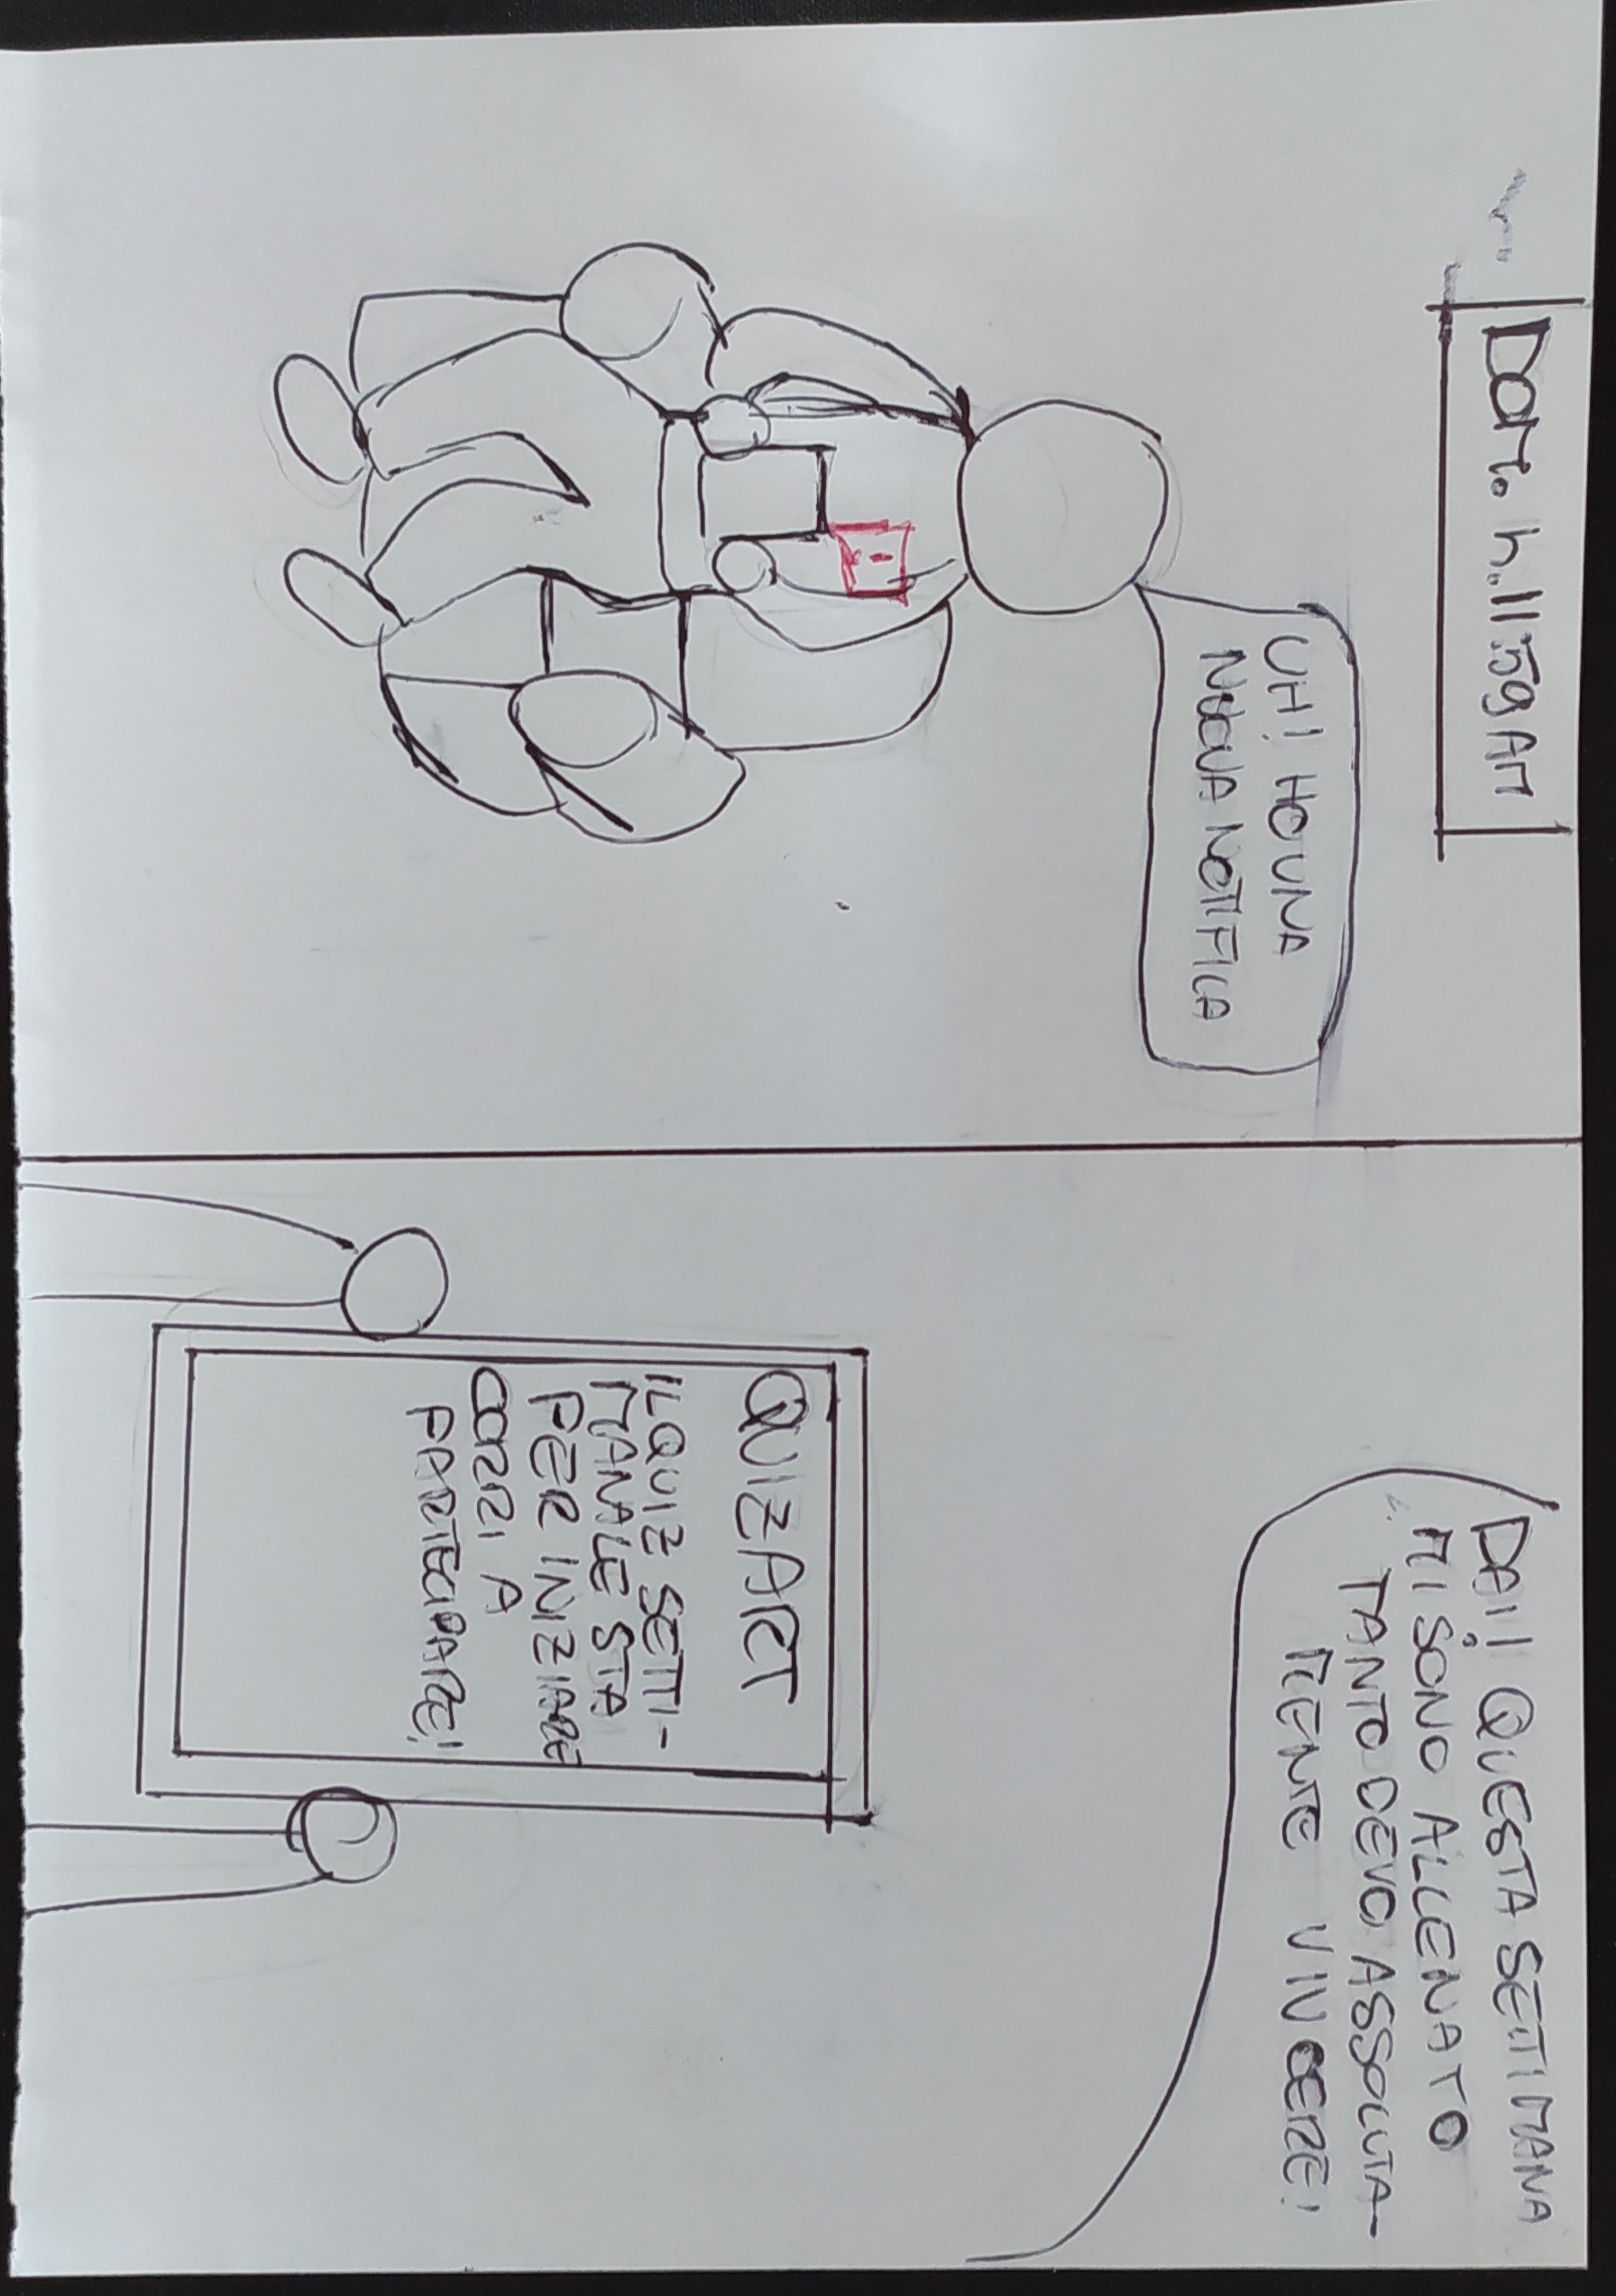 DOM. h.11:59 AM
UH! HO UNA
NUOVA NOTIFICA
DAI! QUESTA SETTIMANA
MI SONO ALLENATO
TANTO DEVO ASSOLUTA-
MENTE VINCERE!
QUIZART
IL QUIZ SETTI-
MANALE STA
PER INIZIARE
CORRI A
PARTECIPARE!